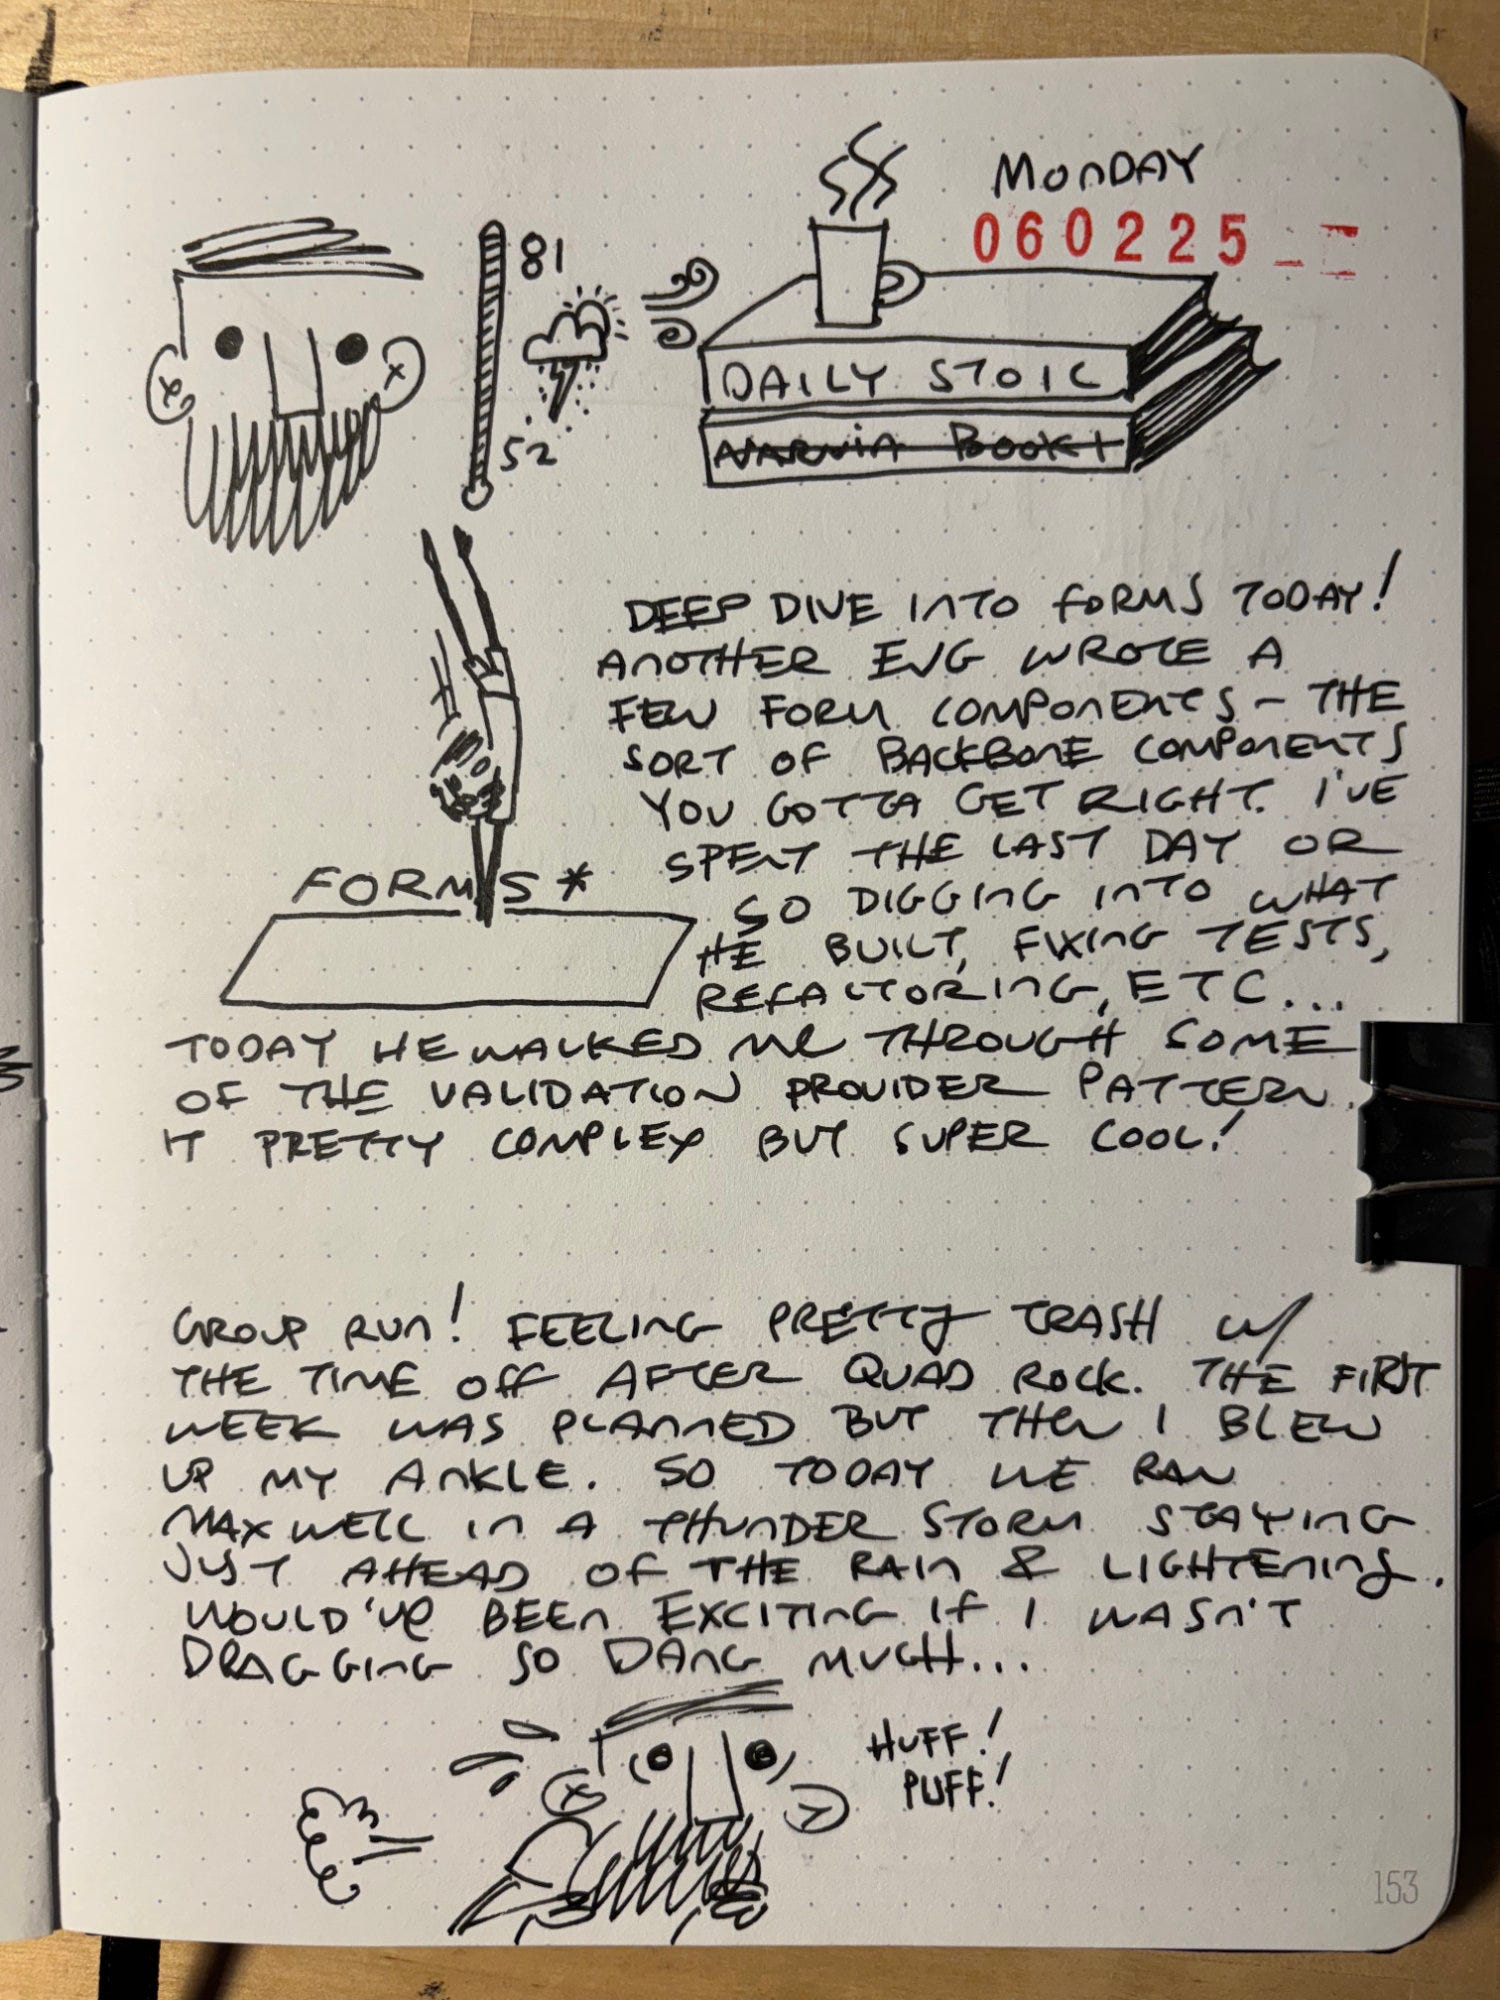 MONDAY
060225
81
52
DAILY STOIC
NARNIA BOOK 1
DEEP DIVE INTO FORMS TODAY!
ANOTHER ENG WROTE A
FEW FORM COMPONENTS – THE
SORT OF BACKBONE COMPONENTS
YOU GOTTA GET RIGHT. I'VE
SPENT THE LAST DAY OR
SO DIGGING INTO WHAT
HE BUILT, FIXING TESTS,
REFACTORING, ETC...
FORMS*
TODAY HE WALKED ME THROUGH SOME
OF THE VALIDATION PROVIDER PATTERN.
IT PRETTY COMPLEX BUT SUPER COOL!
GROUP RUN! FEELING PRETTY TRASH W/
THE TIME OFF AFTER QUAD ROCK. THE FIRST
WEEK WAS PLANNED BUT THEN I BLEW
UP MY ANKLE. SO TODAY WE RAN
MAXWELL IN A THUNDER STORM STAYING
JUST AHEAD OF THE RAIN & LIGHTENING.
WOULD'VE BEEN EXCITING IF I WASN'T
DRAGGING SO DANG MUCH...
HUFF!
PUFF!
153